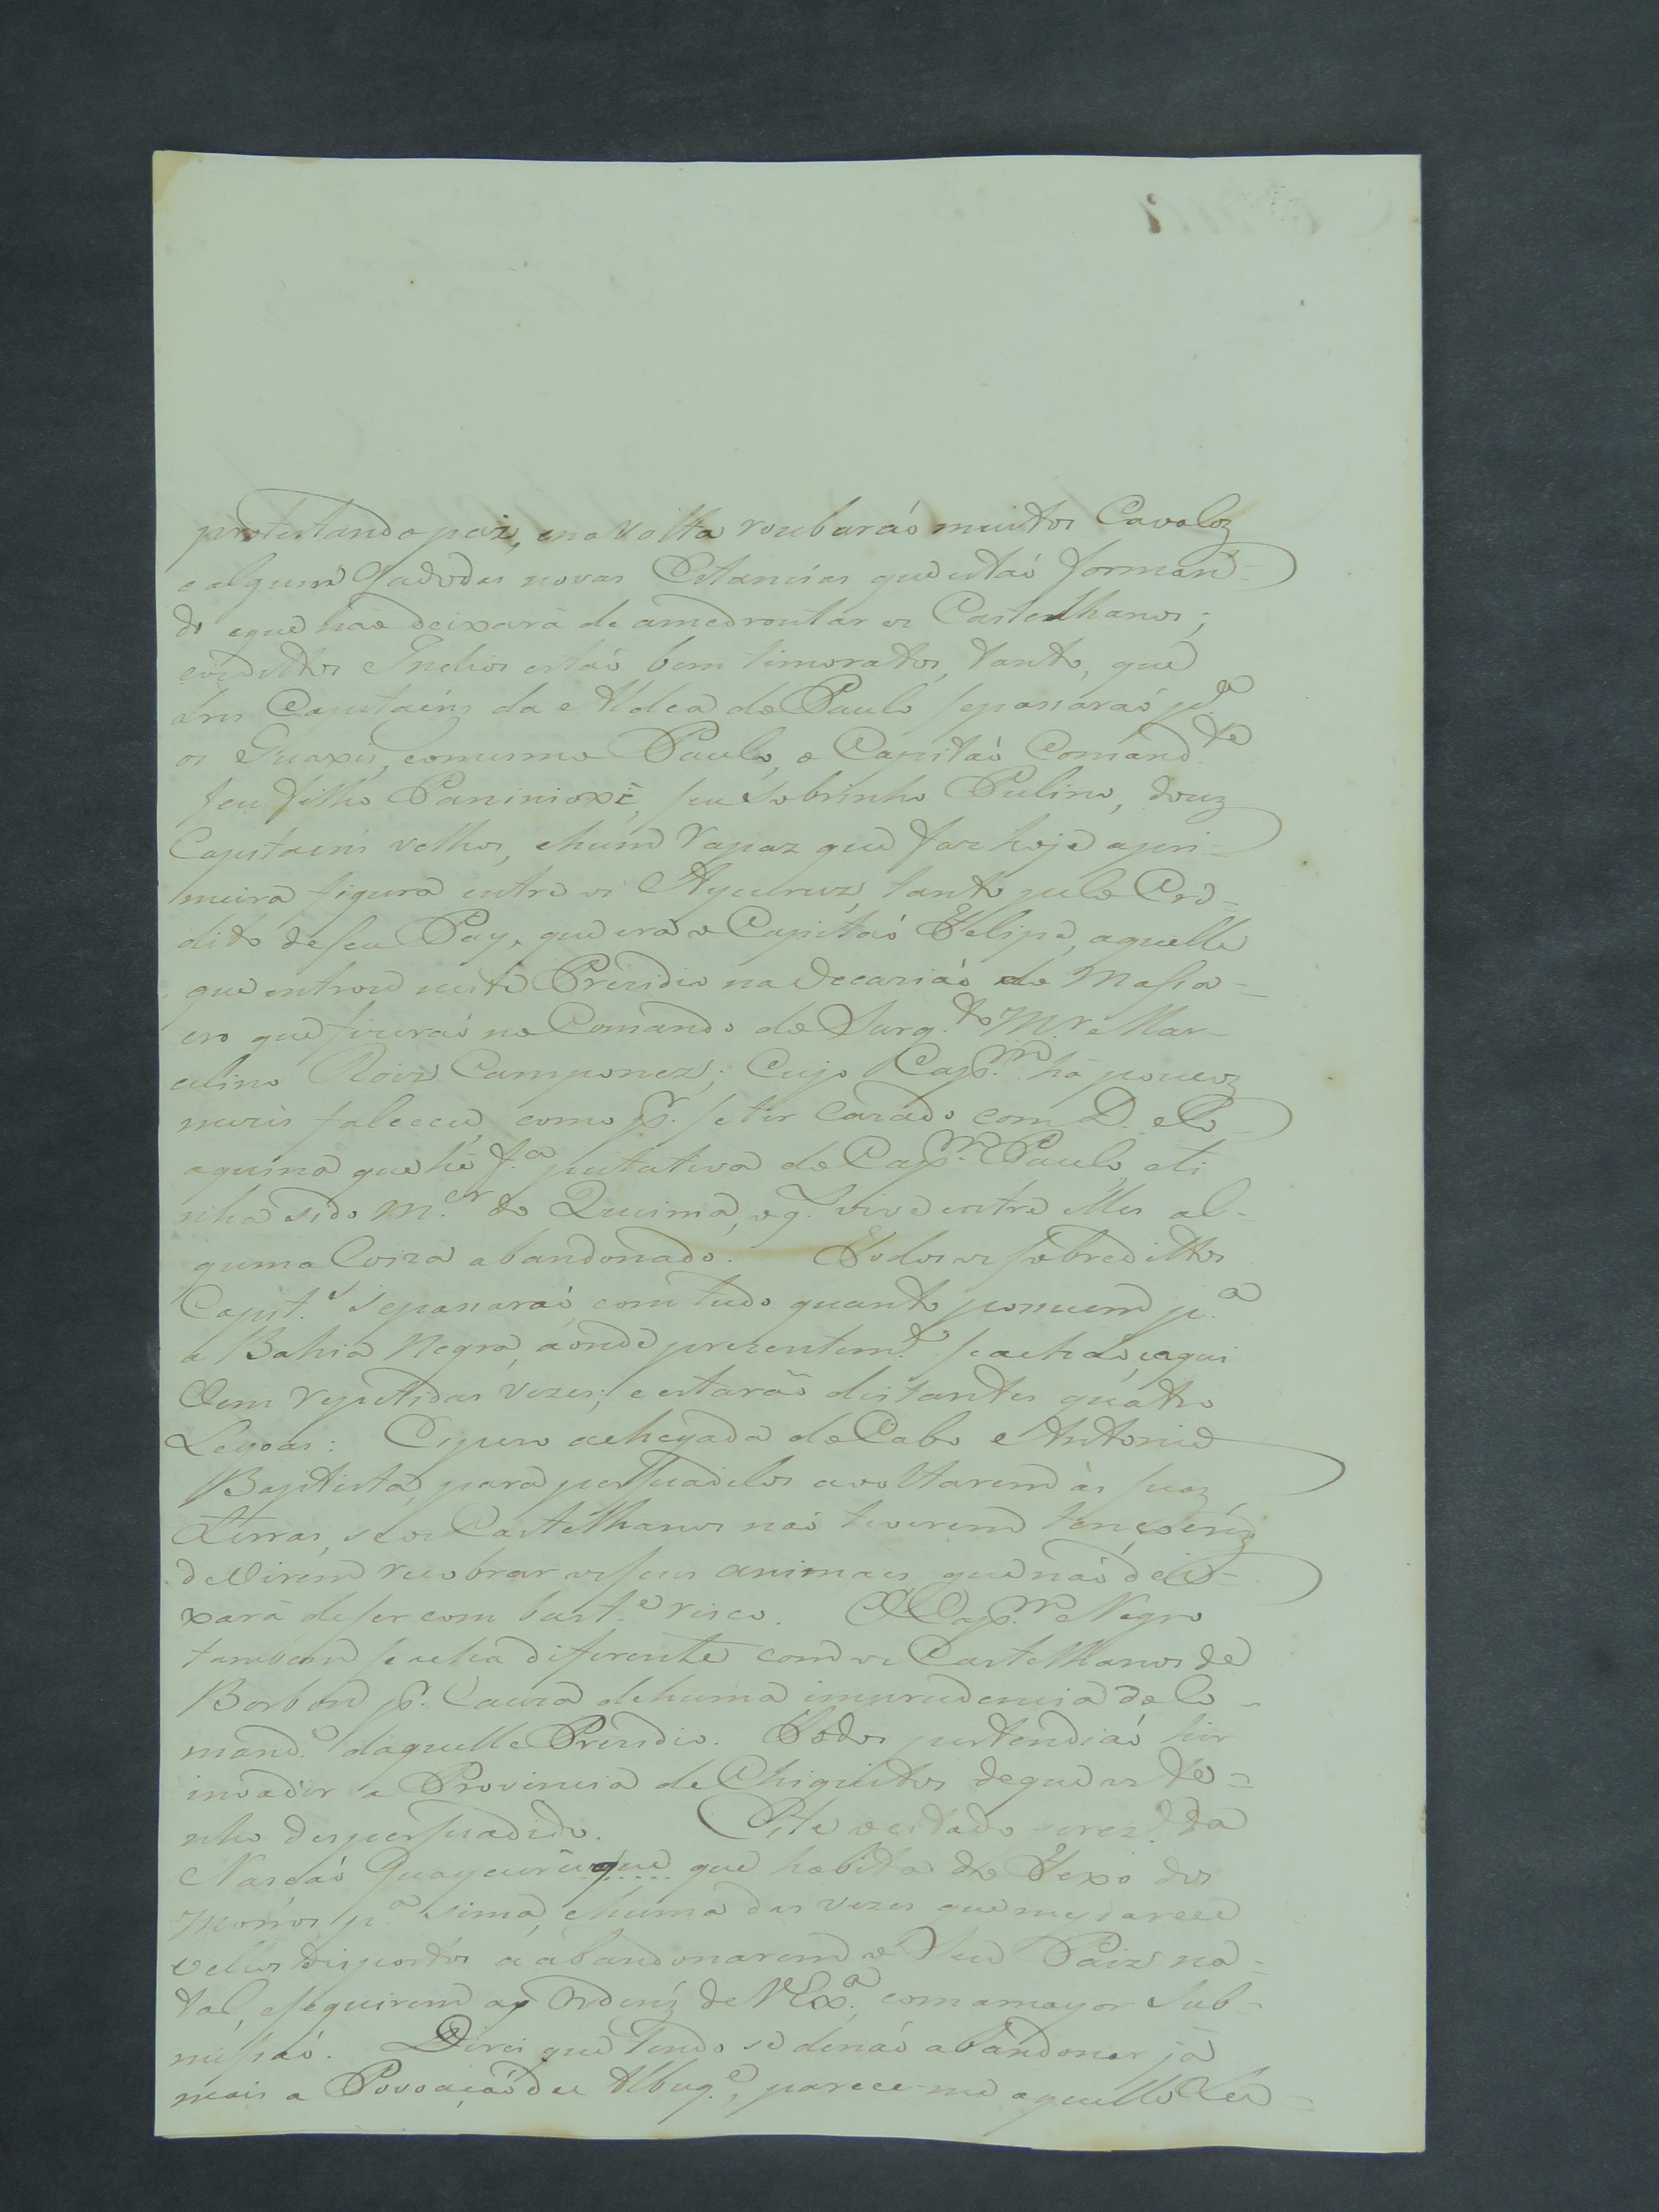 protestando paz, e na volta roubaraó muitos Cavaloz
e algum Gado das novas Estancias que estaó forman=
do e que náo deixará de amedrontar os Castelhanos;
eos dittos Indios estaó bem timoratos, tanto, que
Capitaens da Aldea de Paulo se pasaraó p.ª
os Guaxis, como mesmo Paulo, o Capitaó Comand.te
seu filho Paninioxe, seu Sobrinho Pulino, douz
Capitaens velhos, e hum rapaz que faz hoje a pri=
meira figura entre os Aycuruz, tanto pelo Cre=
dito de seu Pay, que era o Capitaó Felipe, aquelle
que entrou neste Prezidio na Occaziaó do Massa=
cro que fizeraó no Comando do Sarg.to M.r Mar=
celino Roiz Camponez; Cujo Cap.m há poucoz
mezes faleceu, como p.r se ter Cazado com D. Jo=
aquina que hé f.ª putativa do Cap.m Paulo, eti
nha sido M.er do Queima, o q. vive entre elles al=
guma Coiza abandonado. Todos os sobredittos
Capit.s se pasaraó, com tudo quanto posuem p.ª
a Bahia Negra, áonde prezentem.e se acháo, e aqui
Vem repetidas vezes, e estaráo distantes quatro
Legoas: Espero achegada do Cabo Antonio
Baptista, para persuadilos avoltarem ás suaz
Terras, se os Castelhanos naó tiverem tençoens
de virem recobrar os seus animaes, que naó dei=
xará de ser com bast.e risco. O Cap.m Negro
tambem se acha diferente com os Castelhanos de
Borbon p.r Cauza de huma imprudencia do Co=
mand.e daquelle Prezidio. Todos pertendiáo hir
invadir a Provincia de Chiquitos de que os te=
nho despersuadido. Este o estado prez.e da
Nasçaó Guaycurú que que habita do Fexo dos
Morros p.ª sima, e huma das vezes que me parece
vellos dispostos a abandonarem o Seu Paiz na=
tal, e seguirem as Ordens de V Ex.ª com amayor Sub=
missaó. Direi que tendo se de naó abandonar já
mais a Povoaçaó de Albuq.e, parece-me aquelle Ter=